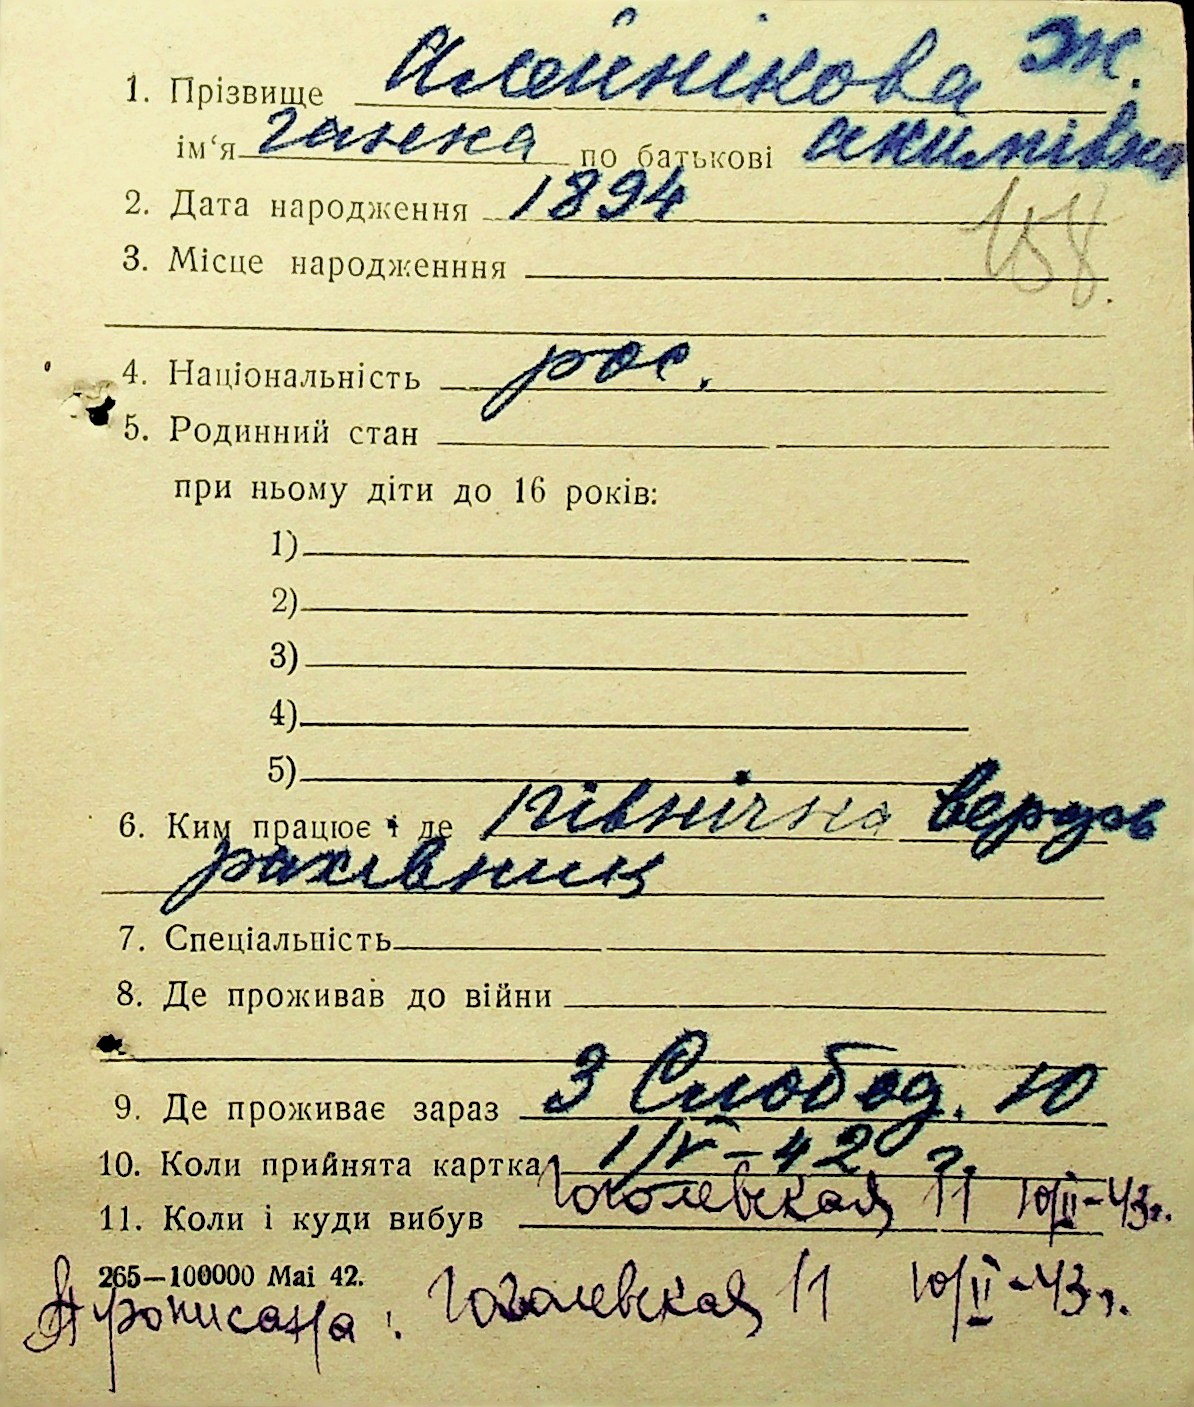 1. Прізвище Алейнікова Ж.
ім‘я Ганна по батькові Акимівна
2. Дата народження 1894
158.
3. Місце народженння
4. Національність рос.
5. Родинний стан
при ньому діти до 16 років:
1)
2)
3)
4)
5)
6. Ким працює і де Північна
рахівниц
7. Спеціальність
8. Де проживав до війни
9. Де проживає зараз 3 Слобод. 10
10. Коли прийнята картка 1/V-42 г.
11. Коли і куди вибув Гоголевская 11 10/II-43г.
265—100000 Mai 42.
Прописана: Гоголевская 11 10/II-43г.